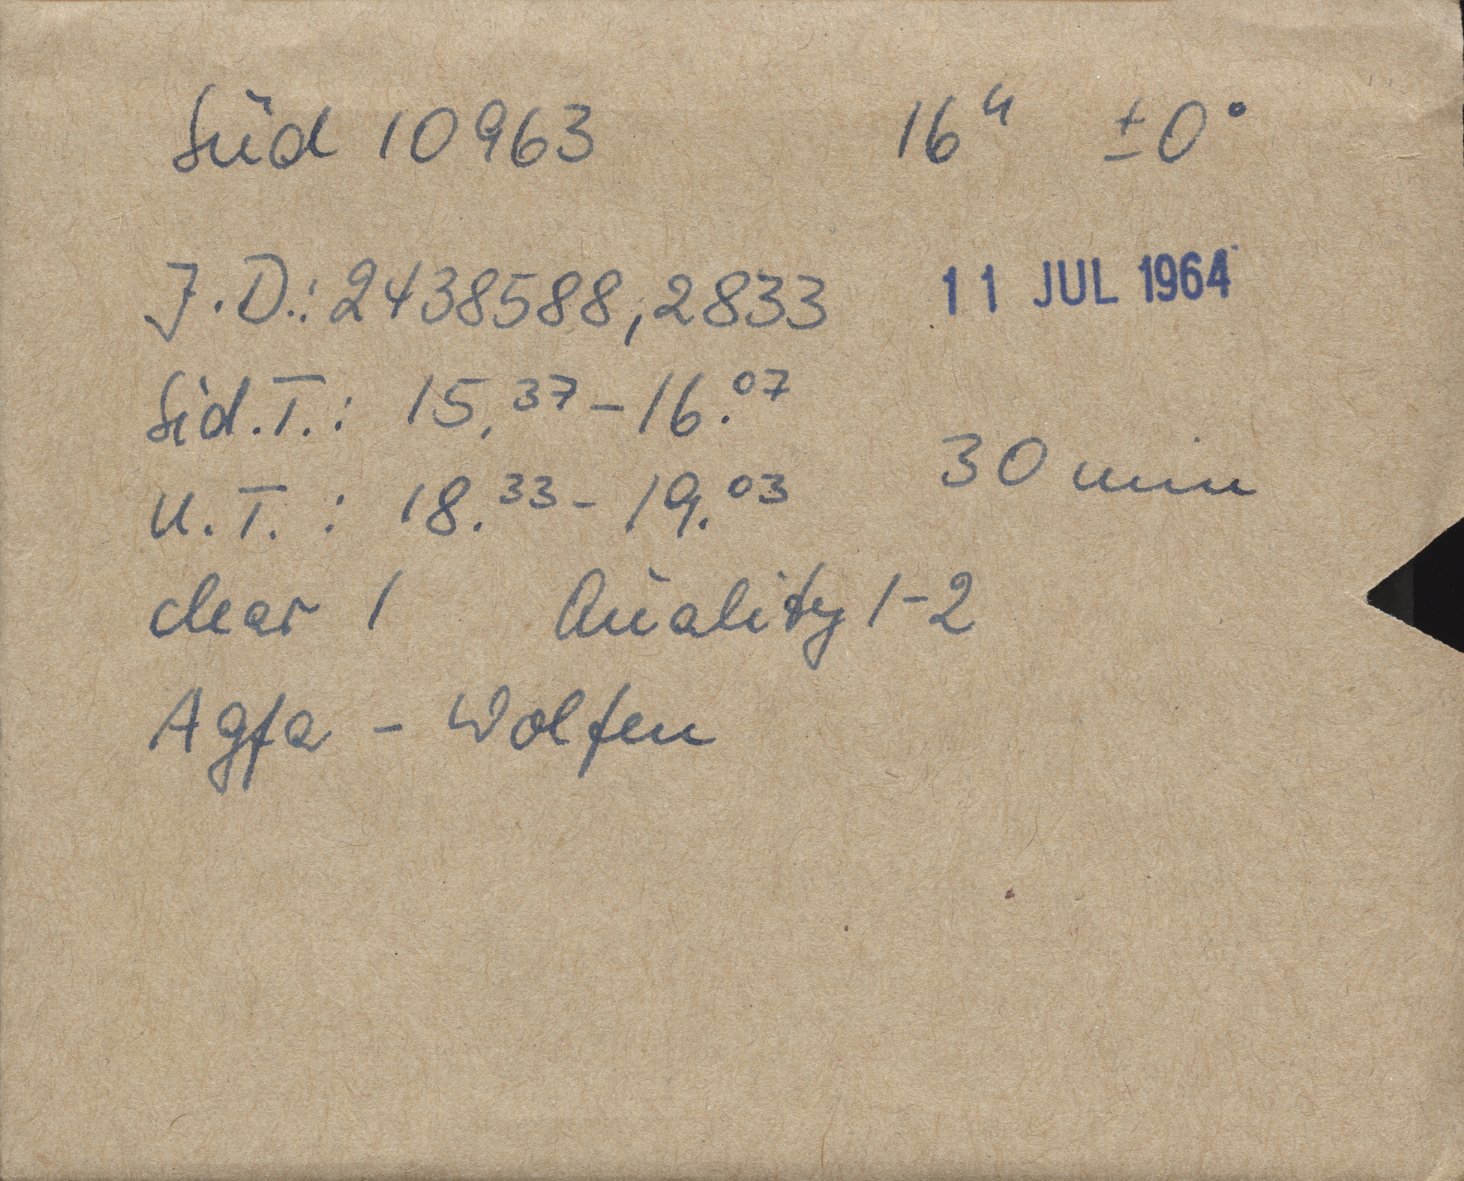 Süd 10963 16ʰ ±0°
J.D.: 2438588,2833 11 JUL 1964
Sid.T.: 15.³⁷ – 16.⁰⁷
30 min
U.T. : 18.³³ – 19.⁰³
clear 1 Quality 1–2
Agfa – Wolfen